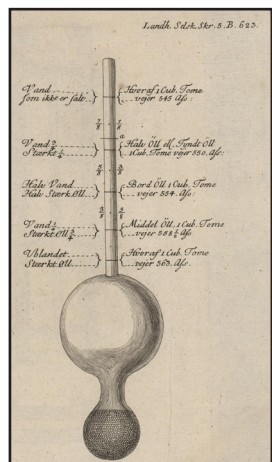 Landh. Selsk. Skr. 5. B. 623.
Vand
som ikke er salt
Hvoraf 1 Cub. Tome
vejer 545 Ass:
7/8 7/8
a
Vand 3/4
Stærkt 1/4
Halv Öll ell. Tyndt Öll
1 Cub. Tome vejer 550. Ass:
5/8 5/8
Halv Vand
Halv Stærk Öll
Bord Öll 1 Cub. Tome
vejer 554. Ass:
3/8 3/8
Vand 1/4
Stærkt Öll 3/4
Middel Öll, 1 Cub. Tome
vejer 558 1/2 Ass:
Ublandet
Stærkt Öll
Hvoraf 1 Cub. Tome
vejer 563. Ass: